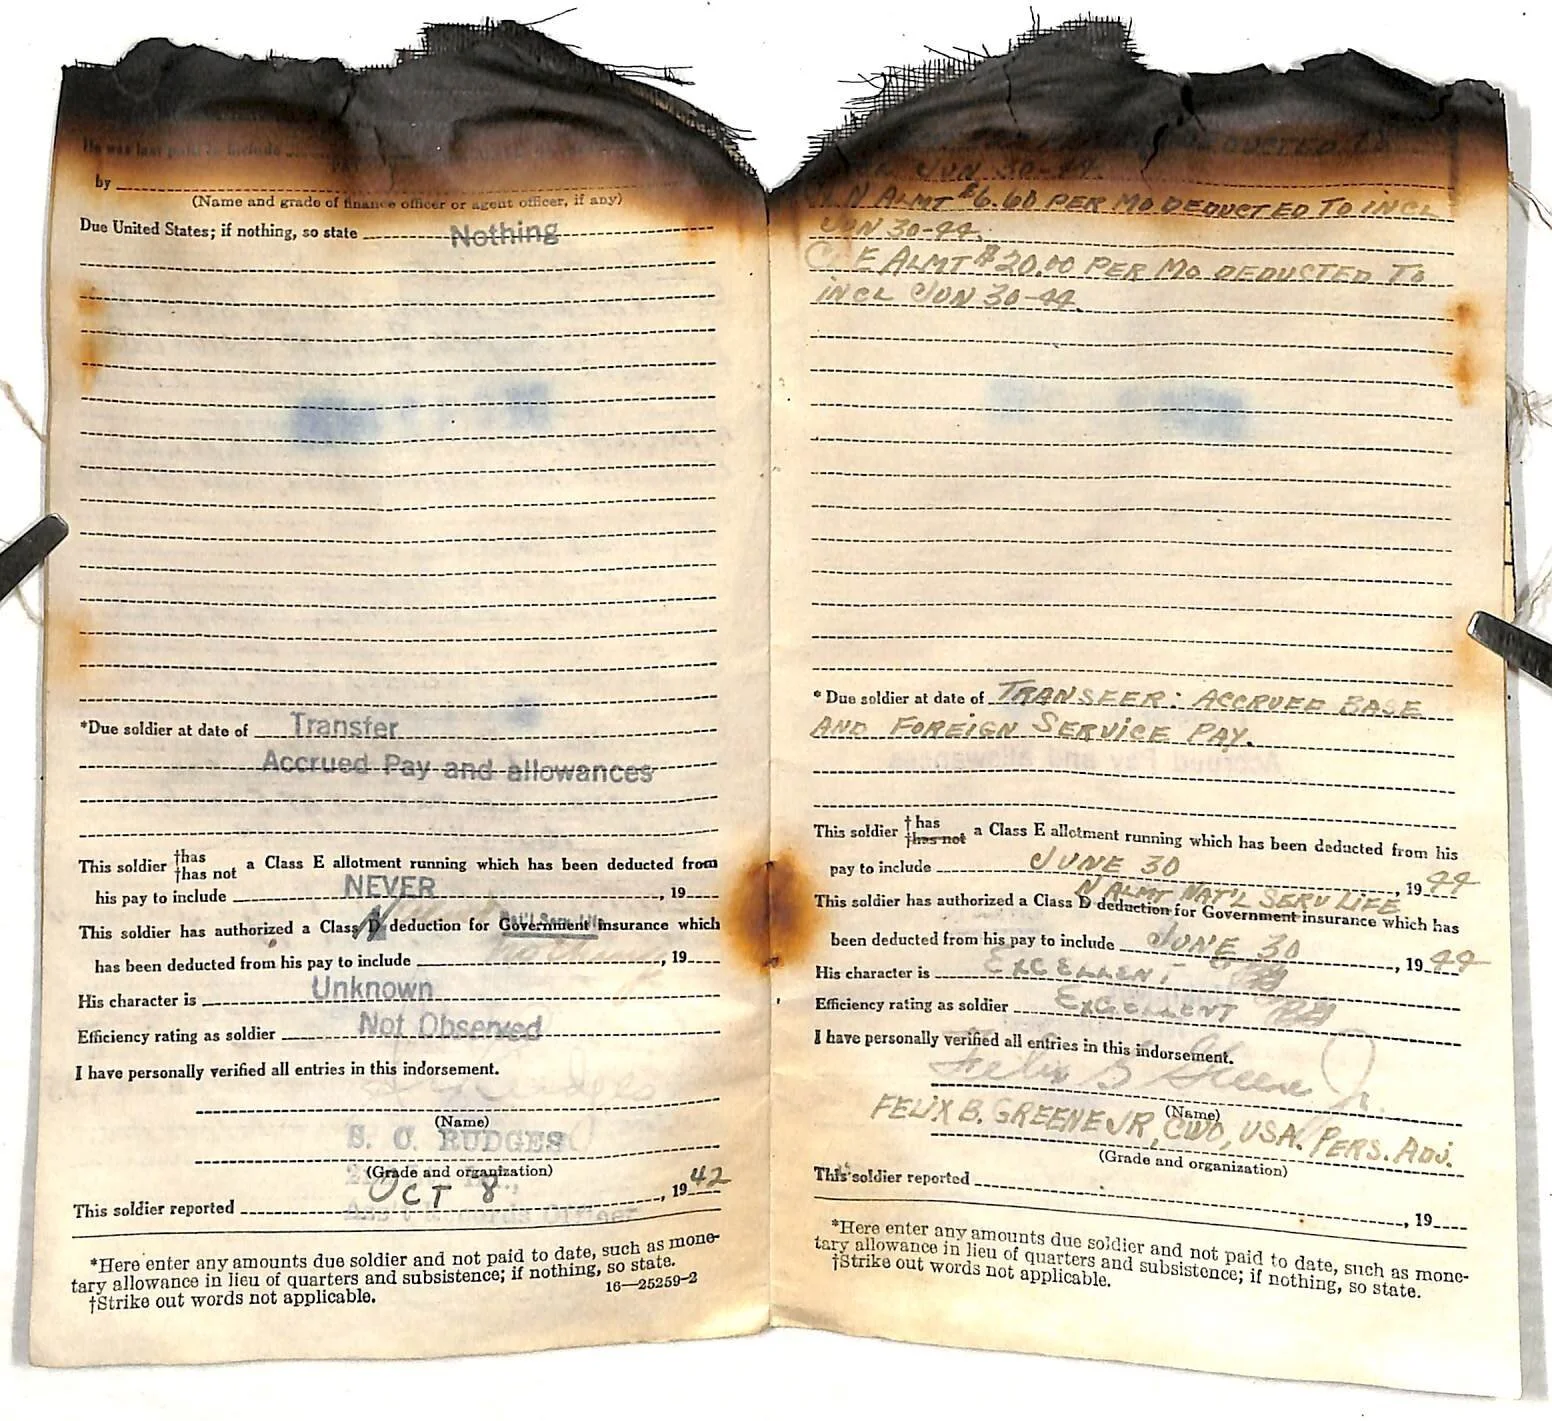 He was last paid to include
by
(Name and grade of finance officer or agent officer, if any)
Due United States; if nothing, so state Nothing
*Due soldier at date of Transfer
Accrued Pay and allowances
This soldier †has †has not a Class E allotment running which has been deducted from
his pay to include NEVER , 19
This soldier has authorized a Class N deduction for Nat'l Serv. Life insurance which
has been deducted from his pay to include , 19
His character is Unknown
Efficiency rating as soldier Not Observed
I have personally verified all entries in this indorsement.
(Name)
S. C. RUDGES
(Grade and organization)
This soldier reported OCT 8 , 1942
Ass't Records Officer
*Here enter any amounts due soldier and not paid to date, such as mone-
tary allowance in lieu of quarters and subsistence; if nothing, so state.
†Strike out words not applicable. 16—25259-2
DEDUCTED TO
JUN 30-44.
N ALMT $6.60 PER MO DEDUCTED TO INCL
JUN 30-44.
E ALMT $20.00 PER MO DEDUCTED TO
INCL JUN 30-44.
*Due soldier at date of TRANSFER: ACCRUED BASE
AND FOREIGN SERVICE PAY.
This soldier †has †has not a Class E allotment running which has been deducted from his
pay to include JUNE 30 , 1944
N ALMT NAT'L SERV LIFE
This soldier has authorized a Class D deduction for Government insurance which has
been deducted from his pay to include JUNE 30 , 1944
His character is EXCELLENT
Efficiency rating as soldier EXCELLENT
I have personally verified all entries in this indorsement.
Felix B Greene Jr.
(Name)
FELIX B. GREENE JR, CWO, USA. PERS. ADJ.
(Grade and organization)
This soldier reported
, 19
*Here enter any amounts due soldier and not paid to date, such as mone-
tary allowance in lieu of quarters and subsistence; if nothing, so state.
†Strike out words not applicable.